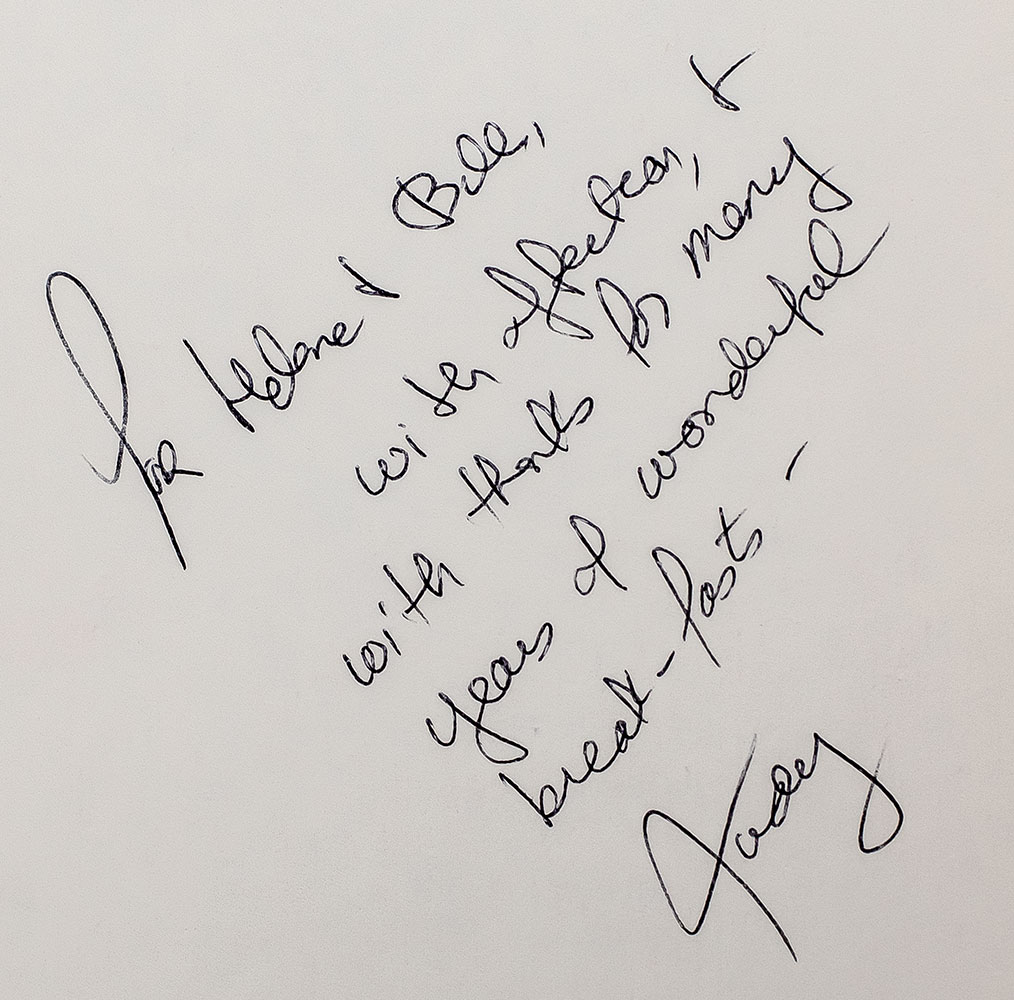 For Helene & Bill,
with affection, &
with thanks for many
years of wonderful
break-fasts -
Judy